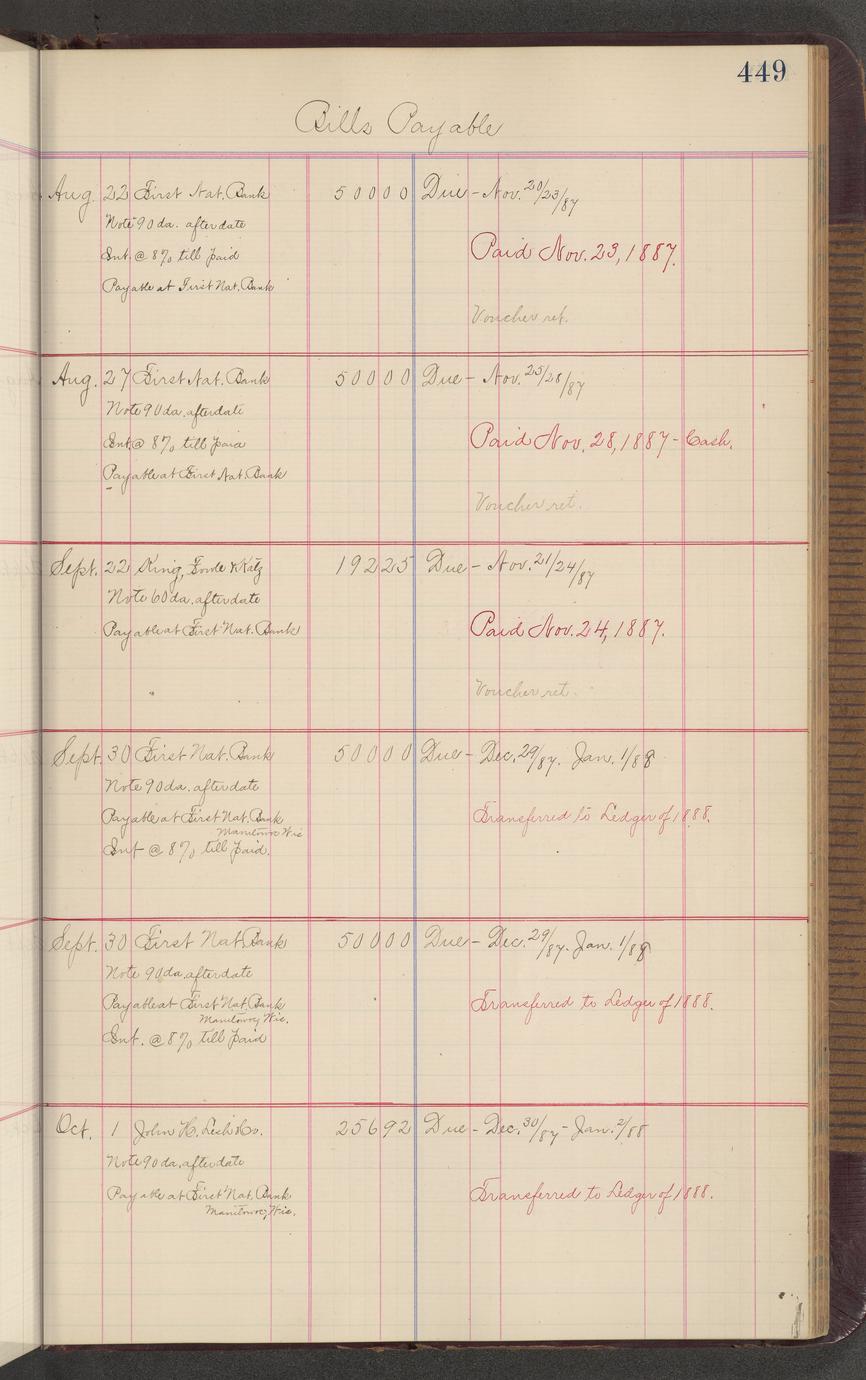 449
Bills Payable
Aug. 22 First Nat. Bank 50000 Due - Nov. 20/23/87
Note 90 da. after date
Int. @ 8% till paid Paid Nov. 23, 1887.
Payable at First Nat. Bank
Voucher ret.
Aug. 27 First Nat. Bank 50000 Due - Nov. 25/28/87
Note 90 da. after date
Int @ 8% till paid Paid Nov. 28, 1887 - Cash.
Payable at First Nat. Bank
Voucher ret.
Sept. 22 King, & Katz 19225 Due - Nov. 21/24/87
Note 60 da. after date
Payable at First Nat. Bank Paid Nov. 24, 1887.
Voucher ret.
Sept. 30 First Nat. Bank 50000 Due - Dec. 29/87. Jan. 1/88
Note 90 da. after date
Payable at First Nat. Bank Transferred to Ledger of 1888.
Manitowoc Wis
Int @ 8% till paid.
Sept. 30 First Nat. Bank 50000 Due - Dec. 29/87. Jan. 1/88
Note 90 da. after date
Payable at First Nat. Bank Transferred to Ledger of 1888.
Manitowoc, Wis.
Int. @ 8% till paid
Oct. 1 John H. & Co. 25692 Due - Dec. 30/87 - Jan. 2/88
Note 90 da. after date
Payable at First Nat. Bank Transferred to Ledger of 1888.
Manitowoc, Wis.